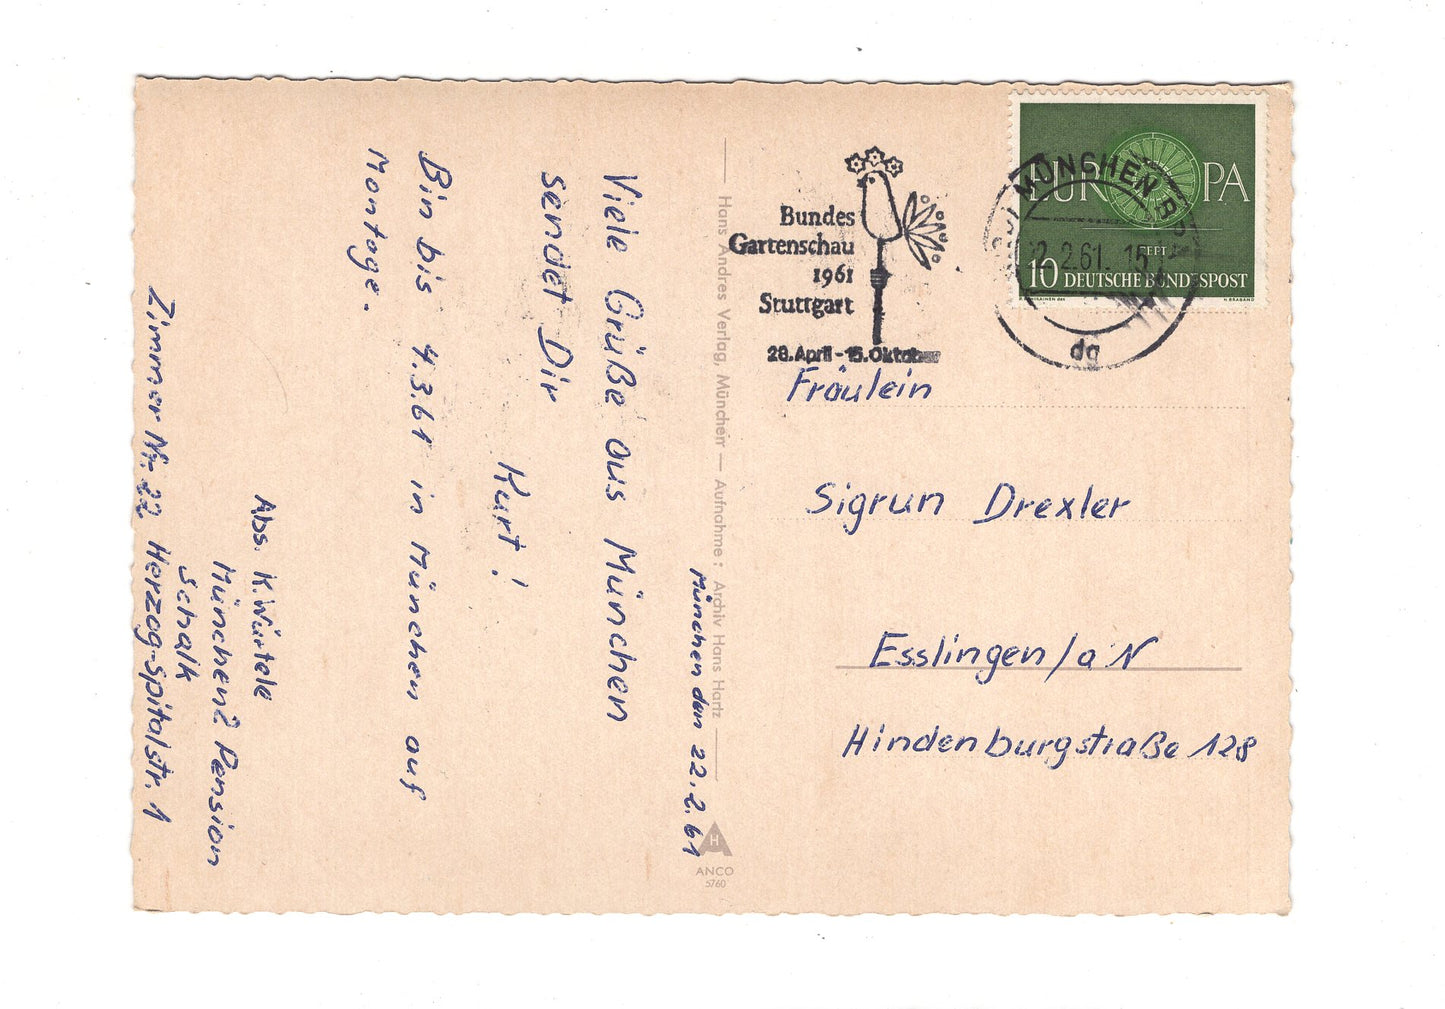 München den 22.2.61
Viele Grüße aus München
sendet Dir
Kurt!
Bin bis 4.3.61 in München auf
Montage.
Abs. K. Würtele
München 2 Pension
Schalk
Zimmer Nr. 22 Herzog-Spitalstr. 1
Hans Andres Verlag, München — Aufnahme: Archiv Hans Hartz
H
ANCO
5760
Bundes
Gartenschau
1961
Stuttgart
28. April - 15. Oktober
MÜNCHEN
2.2.61. 15
dg
EUROPA
CEPT
10 DEUTSCHE BUNDESPOST
Fräulein
Sigrun Drexler
Esslingen/a N
Hindenburgstraße 128